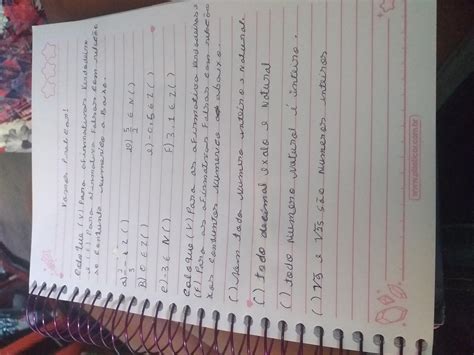 Vamos Praticar!
Coloque (V) Para afirmativas Verdadeira
e (F) Para afirmativa Falsas com relação
ao conjunto numerico a Baixo.
B) 0 ∈ Z ( ) e) -0,6 ∈ Z ( )
C) -3 ∈ N ( ) F) 3,1 ∈ Z ( )
Coloque (V) Para as afirmativas Verdadeiras e
(F) Para as afirmativas Falsas com relação
aos conjuntos numerico abaixo.
( ) nem todo numero inteiro é Natural.
( ) todo decimal exato é Natural
( ) todo Numero Natural é inteiro.
( ) e √25 são Numeros inteiros